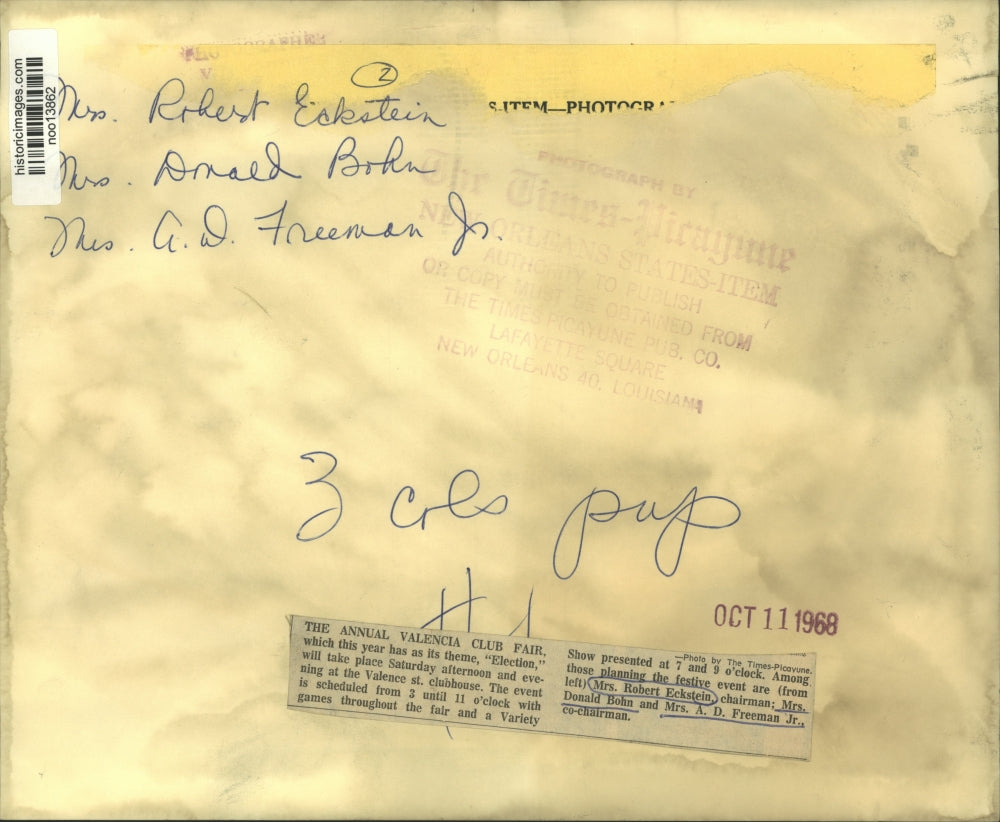 historicimages.com
noo13862
2
S-ITEM—PHOTOGRA
Mrs. Robert Eckstein
Mrs. Donald Bohn
Mrs. A. D. Freeman Jr.
PHOTOGRAPH BY
The Times-Picayune
NEW ORLEANS STATES-ITEM
AUTHORITY TO PUBLISH
OR COPY MUST BE OBTAINED FROM
THE TIMES PICAYUNE PUB. CO.
LAFAYETTE SQUARE
NEW ORLEANS 40, LOUISIANA
3 cols pup
OCT 11 1968
THE ANNUAL VALENCIA CLUB FAIR,
which this year has as its theme, “Election,”
will take place Saturday afternoon and eve-
ning at the Valence st. clubhouse. The event
is scheduled from 3 until 11 o’clock with
games throughout the fair and a Variety
—Photo by The Times-Picayune.
Show presented at 7 and 9 o’clock. Among
those planning the festive event are (from
left) Mrs. Robert Eckstein, chairman; Mrs.
Donald Bohn and Mrs. A. D. Freeman Jr.,
co-chairman.